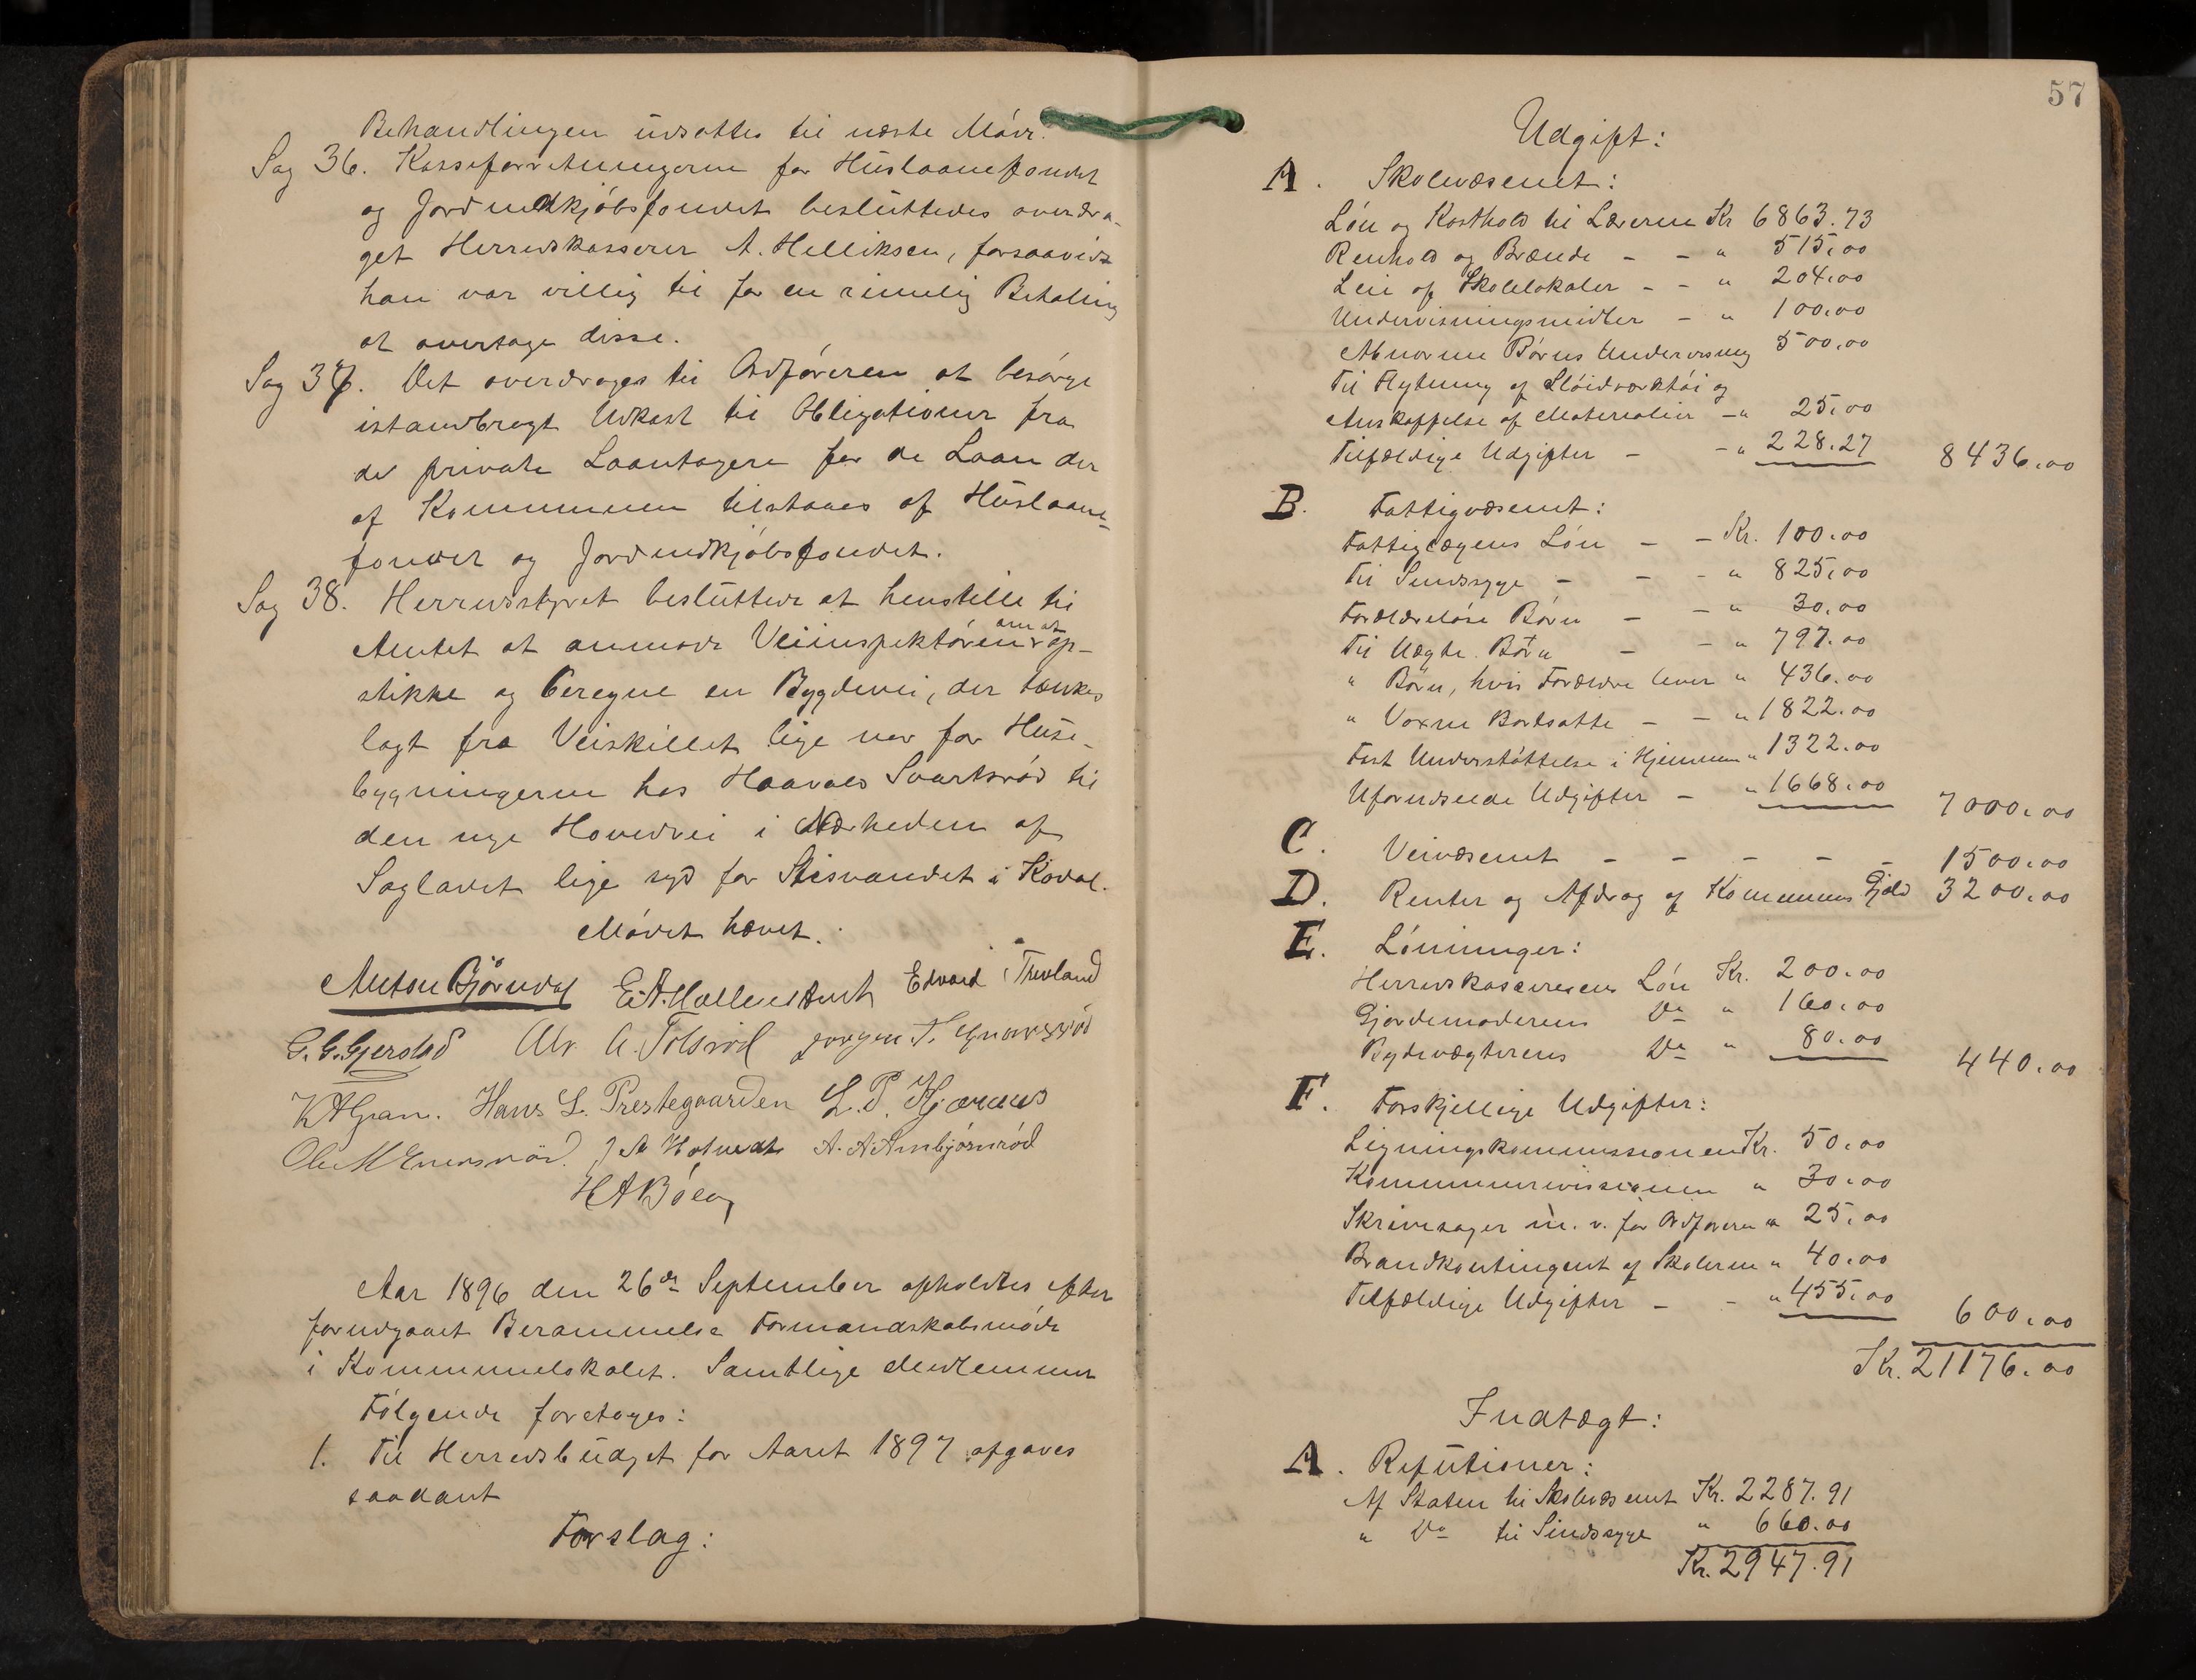 Behandlingen udsattes til næste Møde.
Sag 36. Kasseforretningerne for Huslaanefondet
og Jordindkjøbsfondet besluttedes overdra-
get Herredskasserer A. Helliksen, forsaavidt
han var villig til for en rimelig Betaling
at overtage disse.
Sag 37. Det overdroges til Ordføreren at besørge
istandbragt Udkast til Obligationer fra
de private Laantagere for de Laan der
af Kommunen tilstaaes af Huslaane-
fondet og Jordindkjøbsfondet.
Sag 38. Herredsstyret besluttede at henstille til
Amtet at anmode Veiinspektøren om at op-
stikke og beregne en Bygdevei, der tænkes
lagt fra Veiskillet lige ner for Huse-
bygningerne hos Haavald Svartsrød til
den nye Hovedvei i Nærheden af
Saglavet lige syd for Stisvandet i Kodal.
Mødet hævet.
Anton Bjørndal E. A. Møllenstedt Edvard Trevland
G. G. Gjerstad Alv. A. Tolsrød Jørgen T.
K A Gran. Hans L. Prestegaarden L. P. Hjærnes
Ole M J A Hotvedt A. A Arnbjørnrød
H A Bøeng
Aar 1896 den 26de September afholdtes efter
forudgaaet Berammelse Formandskabsmøde
i Kommunelokalet. Samtlige Medlemmer
Følgende foretoges:
1. Til Herredsbudget for Aaret 1897 afgaves
saadant
Forslag:
57
Udgift:
A. Skolevæsenet:
Løn og Kosthold til Lærerne Kr 6863.73
Renhold og Brænde - - " 515.00
Leie af Skolelokaler - - " 204.00
Undervisningsmidler - " 100.00
Abnorme Børns Undervisning 500.00
Til Flytning af Sløidværktøi og
Anskaffelse af Materialier - " 25.00
Tilfældige Udgifter - - " 228.27 8436.00
B. Fattigvæsenet:
Fattiglægens Løn - - Kr. 100.00
Til Sindssyge - - - " 825.00
Forældreløse Børn - - " 30.00
Til Uægte Børn - - " 797.00
" Børn, hvis Forældre lever " 436.00
" Voxne Bortsatte - - " 1822.00
Fast Understøttelse i Hjemmen " 1322.00
Uforudseede Udgifter - " 1668.00 7000.00
C. Veivæsenet - - - - - 1500.00
D. Renter og Afdrag af Kommunens Gjæld 3200.00
E. Lønninger:
Herredskassererens Løn Kr. 200.00
Gjordemoderens Do " 160.00
Bydevægterens Do " 80.00 440.00
F. Forskjellige Udgifter:
Ligningskommissionen Kr. 50.00
Kommunerevisionen " 30.00
Skrivesager m. v. for Ordføreren " 25.00
Brandkontingent af Skolerne " 40.00
Tilfældige Udgifter - - " 455.00 600.00
Kr. 21176.00
Indtægt:
A. Refutioner:
Af Staten til Skolevæsenet Kr. 2287.91
" Do til Sindssyge " 660.00
Kr. 2947.91